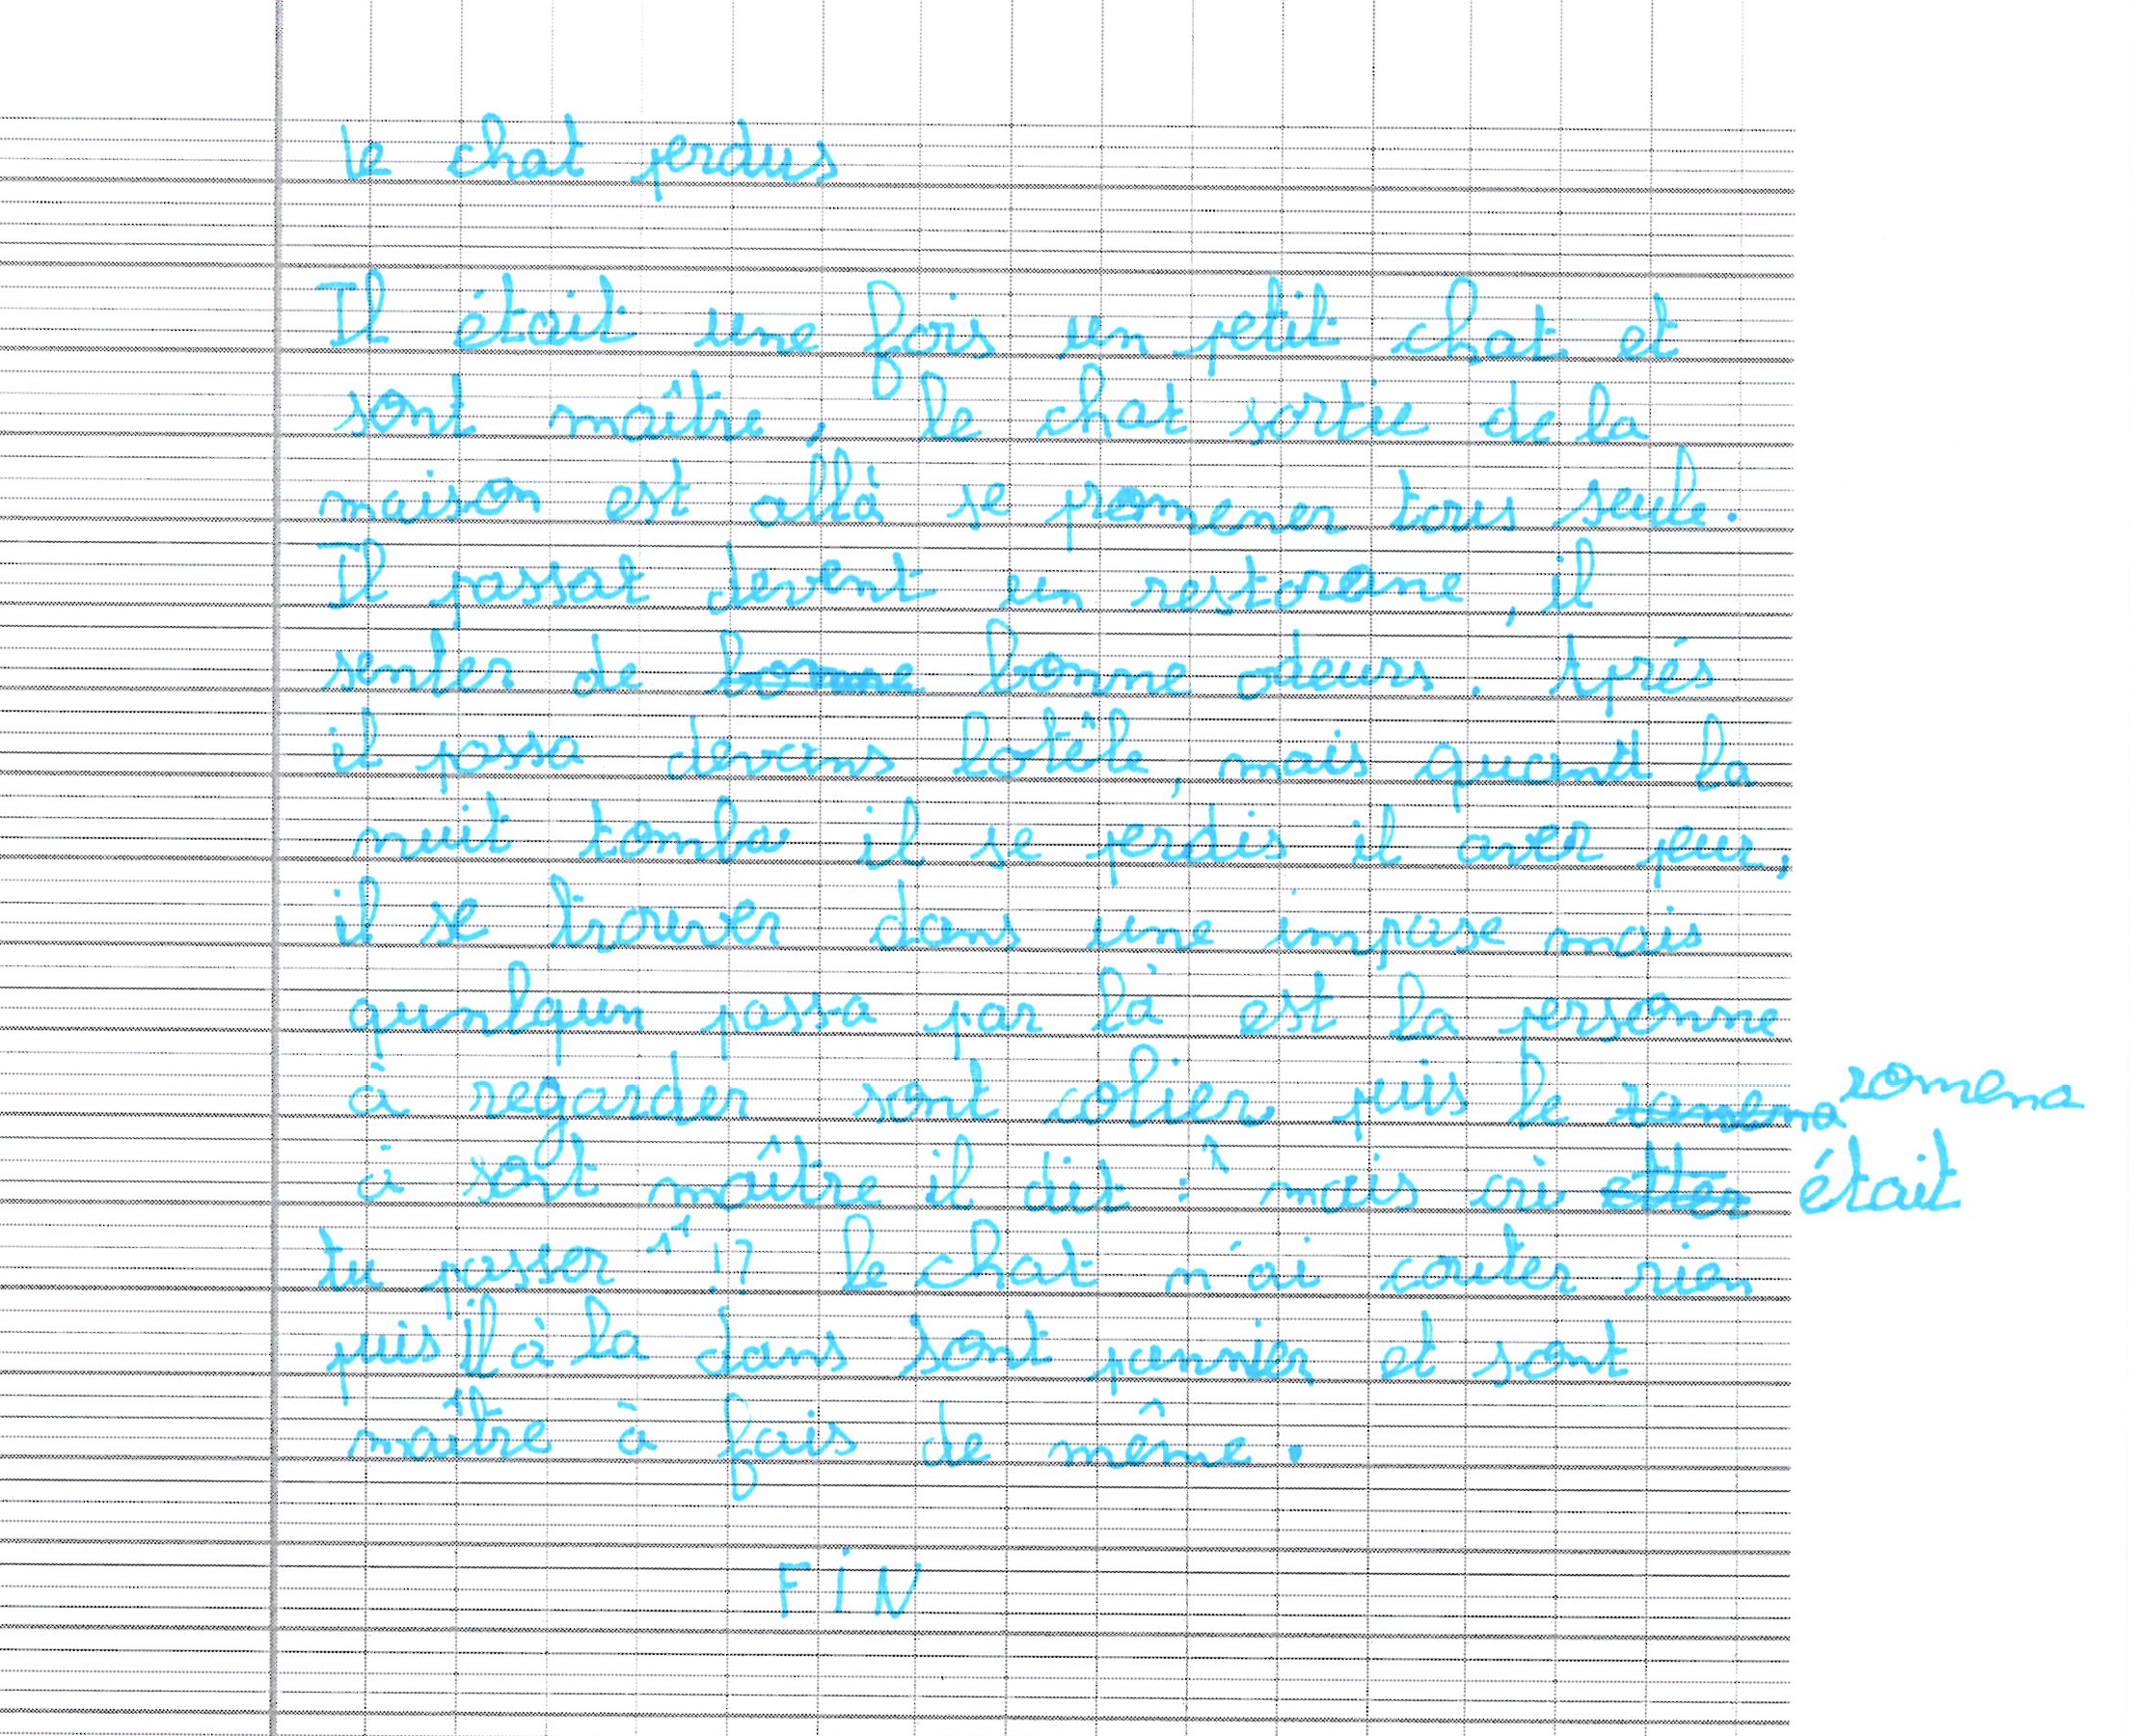 le chat perdus
Il était une fois un petit chat et
sont maître, le chat sortie de la
maison est allà se promener tous seule.
Il passat devent un restorane, il
senter de bonne bonne odeurs. Après
il passa devans lotêle, mais quand la
nuit tomba il se perdis il aver peur,
il se trouver dans une impase mais
quunlqun passa par là est la personne
à regarder sont colier puis le ramena romena
à sont maître il dit : " mais où etter était
tu passer " !? le chat n'ai couter rien
puis il à la dans sont pannier et sont
maître à fais de même.
FiN